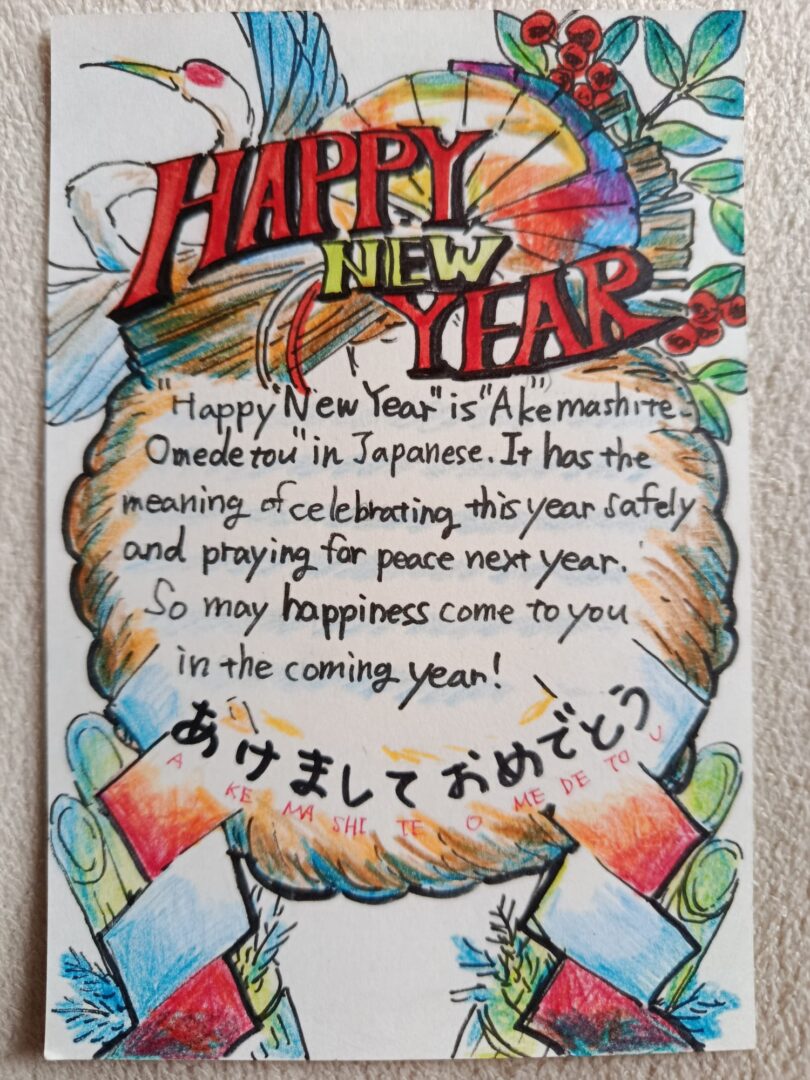 HAPPY
NEW
YEAR
"Happy "New Year" is "Ake"mashite-
Omedetou" in Japanese. It has the
meaning of celebrating this year safely
and praying for peace next year.
So may happiness come to you
in the coming year!
あけまして おめでとう
A KE MA SHI TE O ME DE TO U